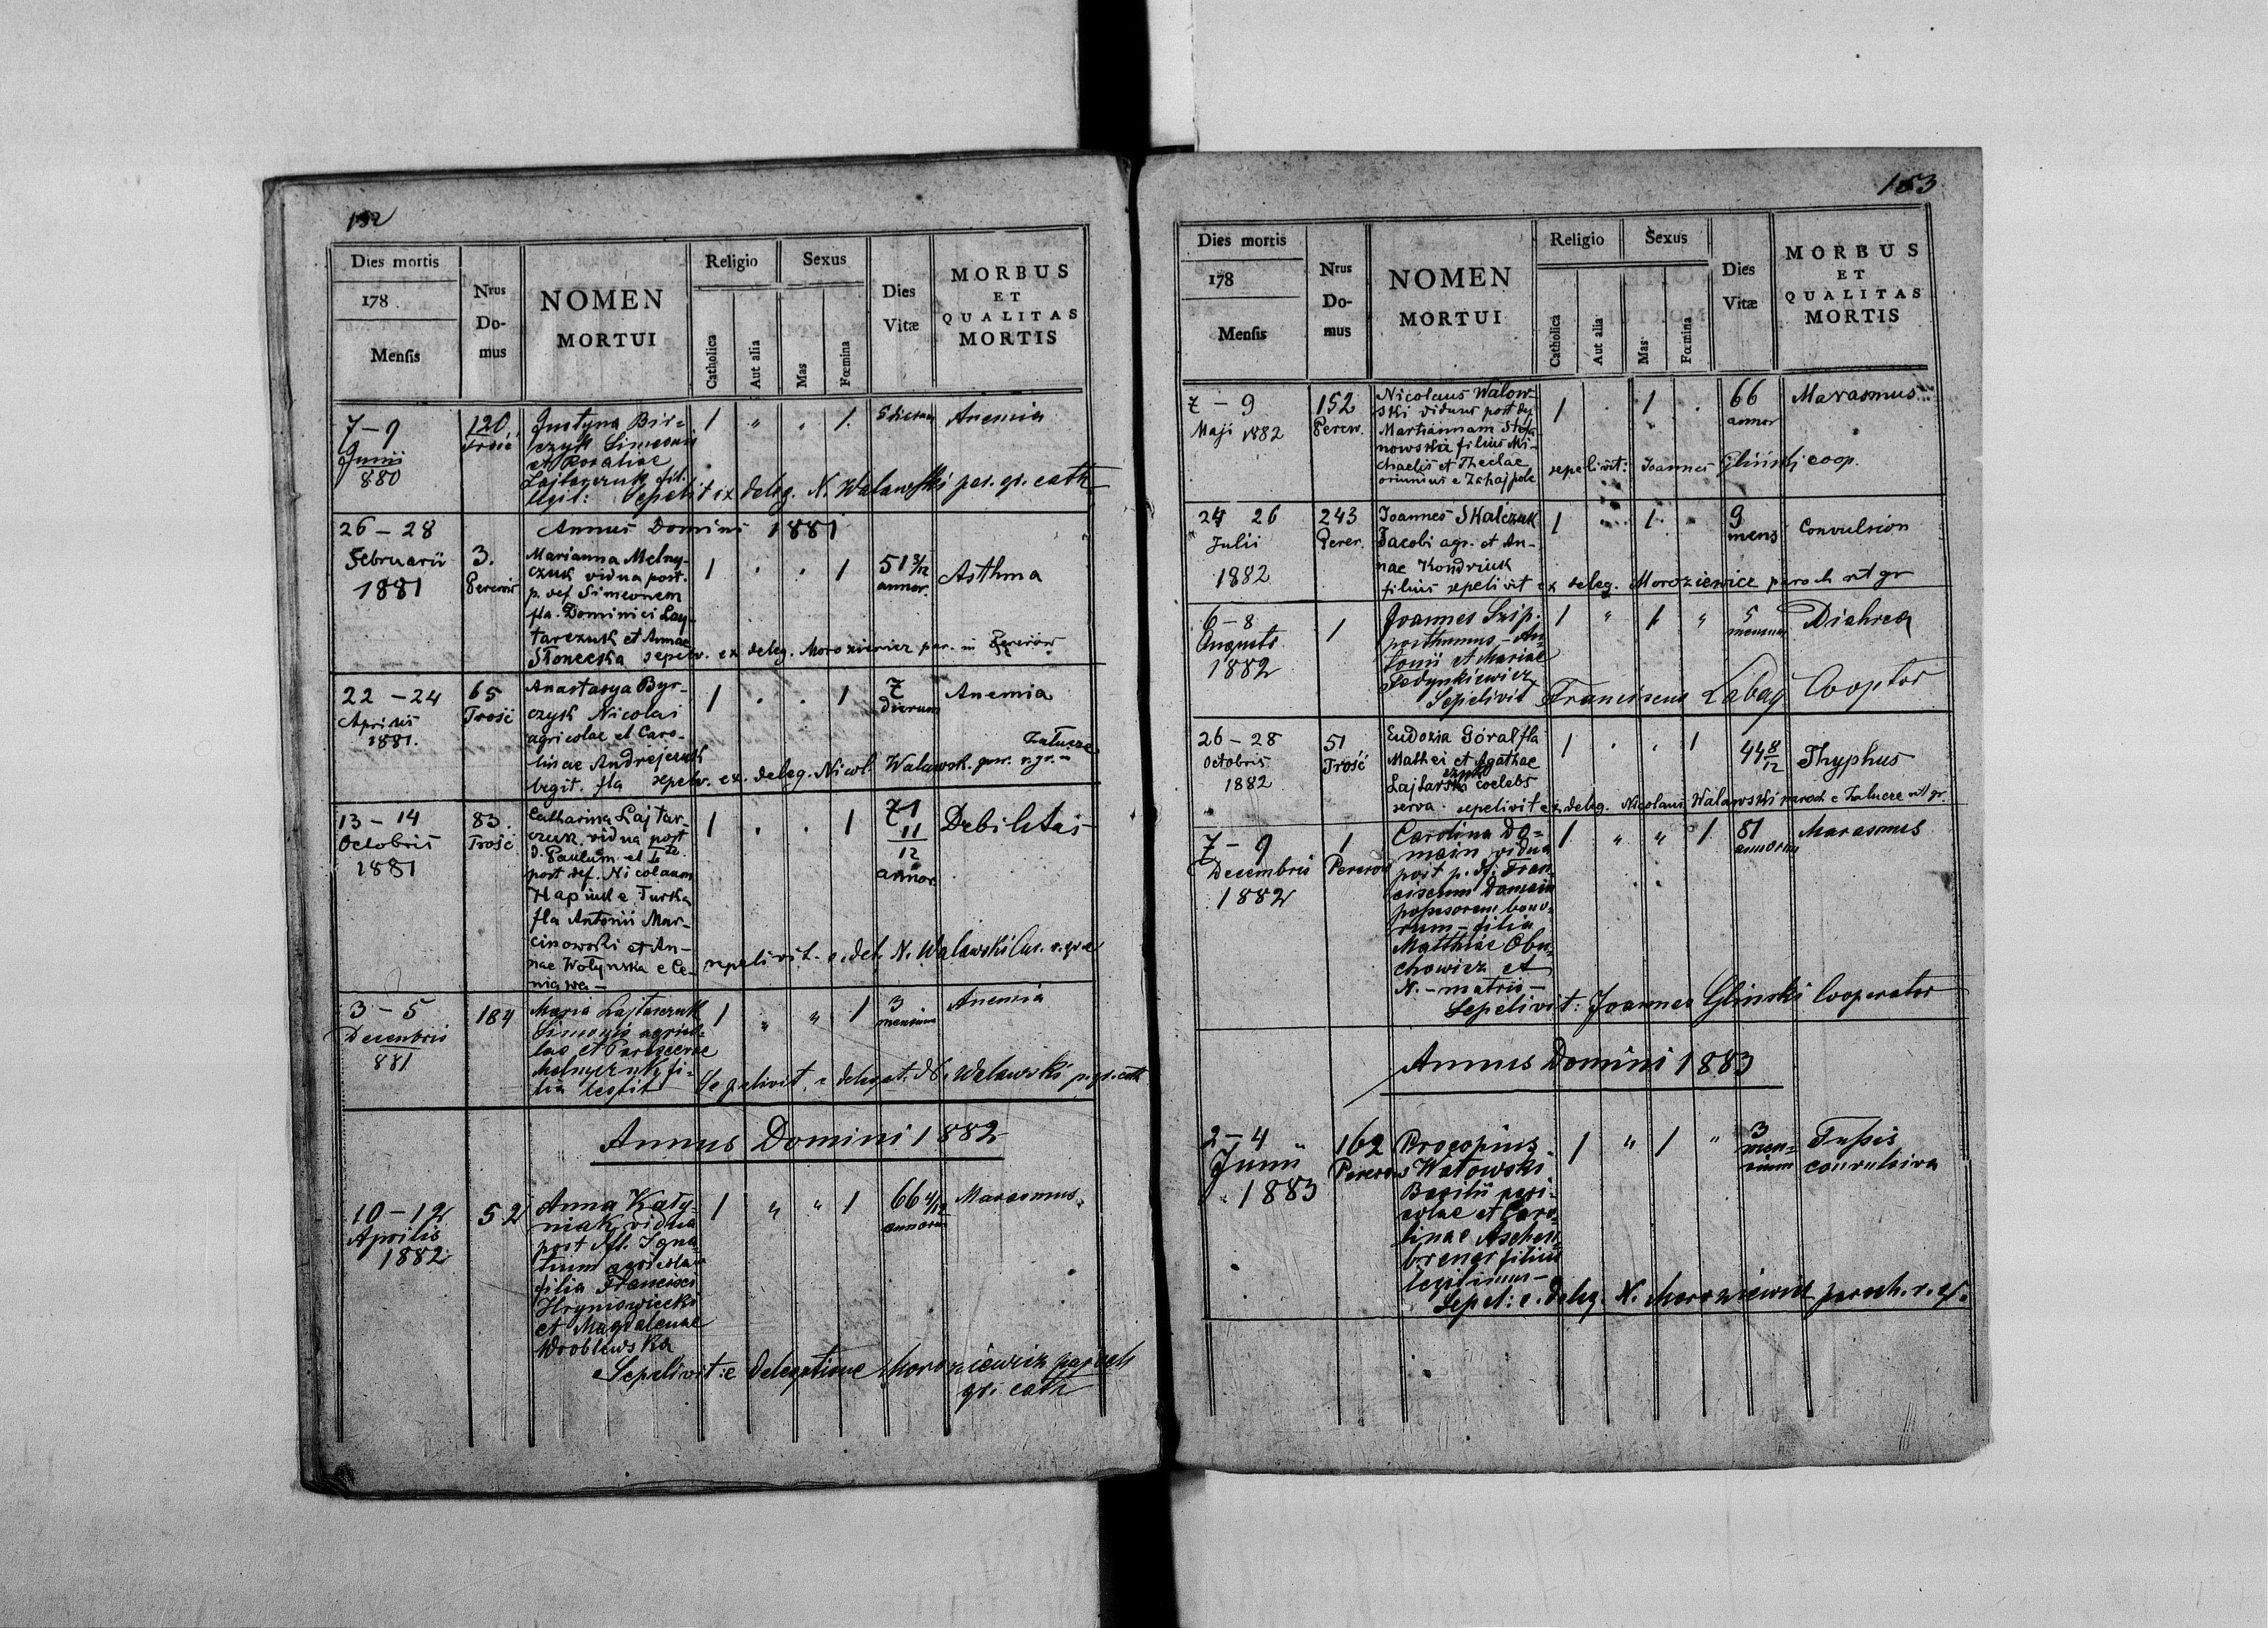 152
Dies mortis
178
Mensis
Nrus
Do-
mus
NOMEN
MORTUI
Religio
Catholica
Aut alia
Sexus
Mas
Fœmina
Dies
Vitæ
MORBUS
ET
QUALITAS
MORTIS
7 – 9
Junii
880
120
Trość
Justyna Bir-
czyk Simeonis
et Rosaliae
Lajtarczuk fil.
legit: Sepelit ex deleg. N. Walawski par. gr. cath
1 " " 1.
5 dierum
Anemia
Annus Domini 1881
26 – 28
Februarii
1881
3.
Pererow
Marianna Melny-
czuk vidua post.
p. def. Simeonem
fla. Dominici Laj-
tarczuk et Annae
Słonecka sepelv. ex deleg. Moroziewicz par. in Pererow
1 . . 1
51 3/12
annor.
Asthma
22 – 24
Aprilis
1881.
65
Trość
Anastasya Byr-
czyk Nicolai
agricolae et Caro-
linae Andrejczuk
legit. fla sepelv. ex. deleg. Nicol. Walawsk. par. r. gr. Załucze
1 . . 1
7
dierum
Anemia
13 – 14
Octobris
1881
83
Trość
Catharina Lajtar-
czuk vidua post
d. Paulum et
post def. Nicolaum
Hapiuk e Turka
fla Antonii Mar-
cinowski et An-
nae Wołynska e Ce-
niawa – sepelivit e. del. N. Walawski
1 . . 1
71
11
12
annor
Debilitas
3 – 5
Decembris
881
184
Maria Lajtarczuk
Simonis agrico-
lae et Parasceve
Melnyczuk fi-
lia legit Sepelivit e delegat. N. Walawski p. gr. cath
1 " " 1
3
mensium
Anemia
Annus Domini 1882
10 – 12
Aprilis
1882
52
Anna Kały-
niak vidua
post def. Igna-
tium agricolam
filia Francisci
Hryniowiecki
et Magdalenae
Wroblewska
Sepelivit: e delegatione Moroziewicz paroch
gr. cath
1 " " 1
66 4/12
annorum
Marasmus
153
Dies mortis
178
Mensis
Nrus
Do-
mus
NOMEN
MORTUI
Religio
Catholica
Aut alia
Sexus
Mas
Fœmina
Dies
Vitæ
MORBUS
ET
QUALITAS
MORTIS
7 – 9
Maji 1882
152
Perer.
Nicolaus Walow-
ski viduus post def
Martiannam Stefa-
nowska filius Mi-
chaelis et Theclae
oriundus e Zahajpole sepelivit: Joannes Gliński coop.
1 . 1 .
66
annor
Marasmus
24 26
Julii
1882
243
Perer.
Joannes Skalczuk
Jacobi agr. et An-
nae Kondriuk
filius sepelivit ex deleg. Moroziewicz paroch rit gr
1 . 1 .
9
mens
Convulsion
6 – 8
Augusti
1882
1
Joannes Szip.
posthumus – An-
tonii et Mariae
Fedynkiewicz
Sepelivit Franciscus Łabay Cooptor
1 " 1 "
5
mensium
Diahrea
26 – 28
Octobris
1882
51
Trość
Eudoxia Góral fla
Mathei et Agathae
Lajtarczuk coelebs
serva. sepelivit ex deleg. Nicolaus Walawski paroch e Załucze rit gr.
1 . . 1
44 8/12
Thyphus
7 – 9
Decembris
1882
1
Pererow
Carolina Do-
main vidua
post p. df. Fran-
ciscum Domain
possesorem bono-
rum – filia
Matthiae Obu-
chowicz et
N. – matris –
Sepelivit: Joannes Glinski Cooperator
1 " " 1
81
annorum
Marasmus
Annus Domini 1883
2 – 4
Junii
1883
162
Pererow
Procopius
Wałowski
Basilii agri-
colae et Caro-
linae Aschen-
brener filius
legitimus –
Sepel: e. deleg. N. Moroziewicz paroch. r. gr.
1 " 1 "
3
men-
sium
Tussis
convulsiva